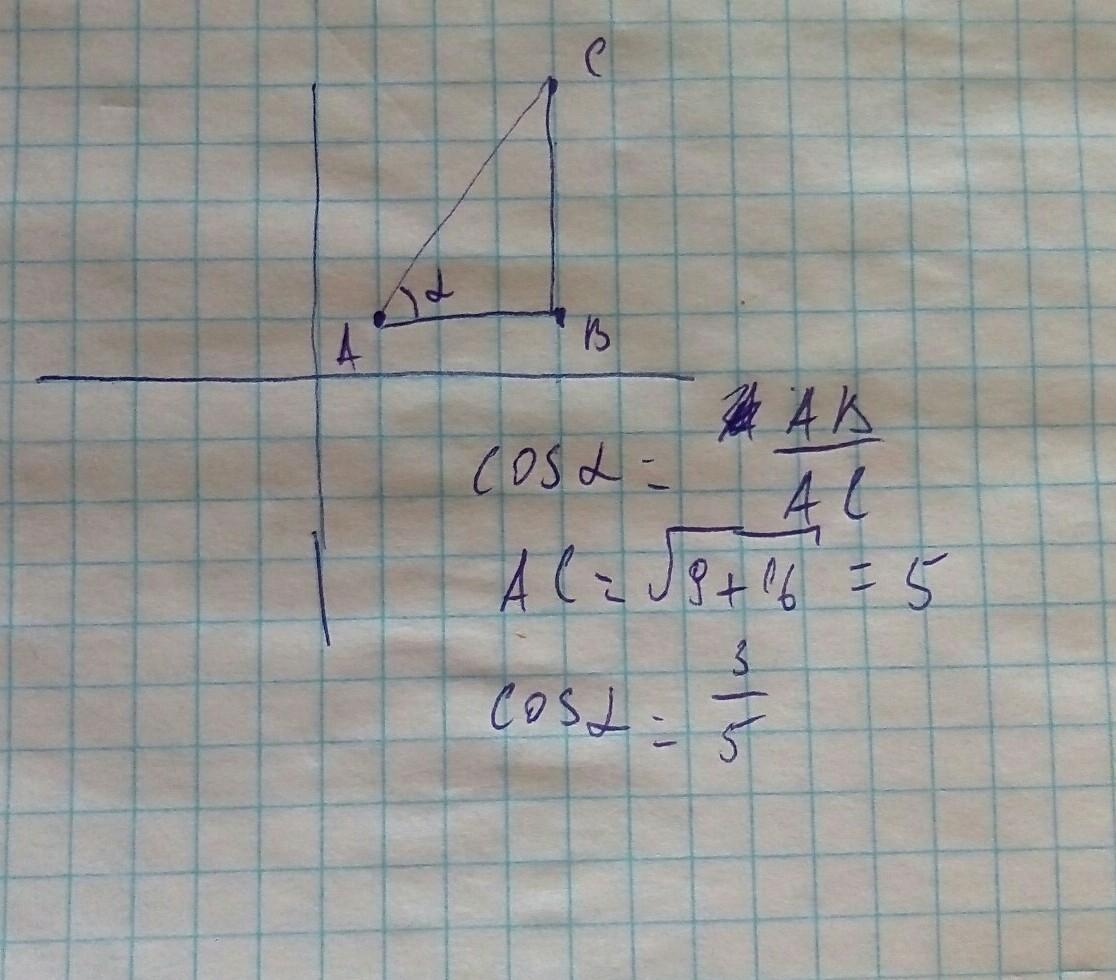 C
α
A
B
cos α = AB/AC
AC = √9+16 = 5
cos α = 3/5